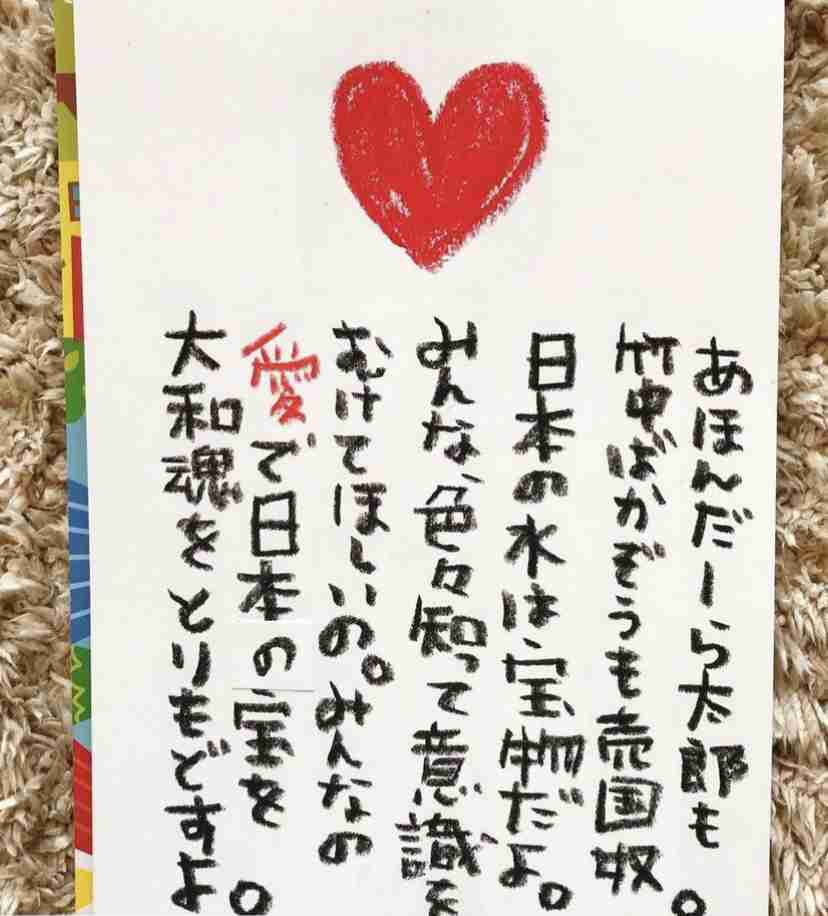 あほんだーら太郎も
竹中ばかぞうも売国奴。
日本の水は宝物だよ。
みんな、色々知って意識を
むけてほしいの。みんなの
愛で日本の宝を
大和魂をとりもどすよ。